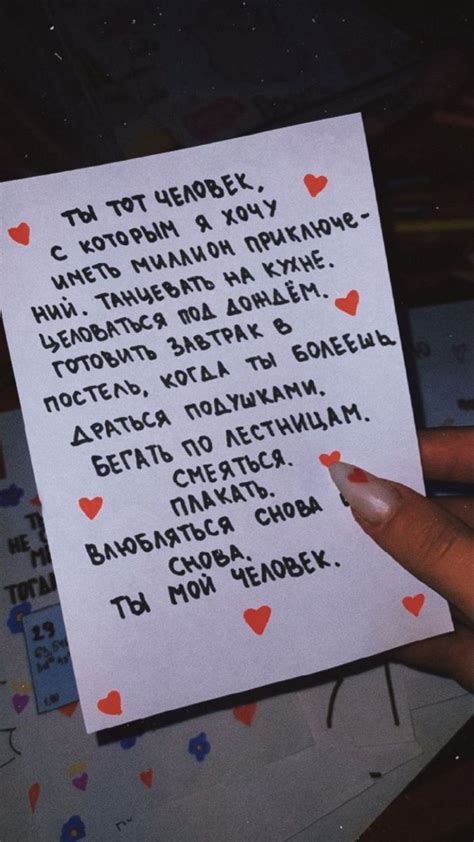 ТЫ ТОТ ЧЕЛОВЕК,
С КОТОРЫМ Я ХОЧУ
ИМЕТЬ МИЛЛИОН ПРИКЛЮЧЕ-
НИЙ. ТАНЦЕВАТЬ НА КУХНЕ.
ЦЕЛОВАТЬСЯ ПОД ДОЖДЁМ.
ГОТОВИТЬ ЗАВТРАК В
ПОСТЕЛЬ, КОГДА ТЫ БОЛЕЕШЬ
ДРАТЬСЯ ПОДУШКАМИ.
БЕГАТЬ ПО ЛЕСТНИЦАМ.
СМЕЯТЬСЯ.
ПЛАКАТЬ.
ВЛЮБЛЯТЬСЯ СНОВА
СНОВА.
ТЫ МОЙ ЧЕЛОВЕК.
29